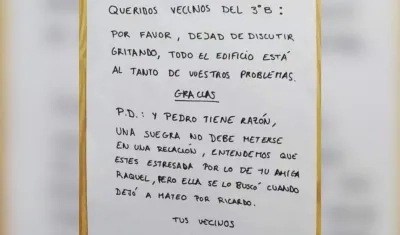 QUERIDOS VECINOS DEL 3ºB:
POR FAVOR, DEJAD DE DISCUTIR
GRITANDO, TODO EL EDIFICIO ESTÁ
AL TANTO DE VUESTROS PROBLEMAS.
GRACIAS
P.D.: Y PEDRO TIENE RAZÓN,
UNA SUEGRA NO DEBE METERSE
EN UNA RELACIÓN, ENTENDEMOS QUE
ESTES ESTRESADA POR LO DE TU AMIGA
RAQUEL, PERO ELLA SE LO BUSCÓ CUANDO
DEJÓ A MATEO POR RICARDO.
TUS VECINOS